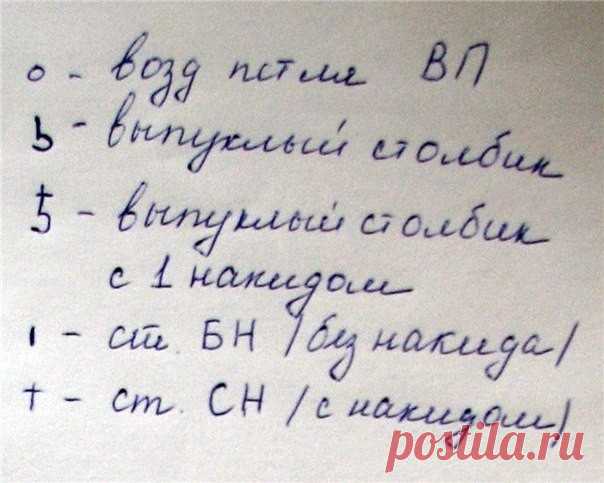 о - возд петля ВП
ь - выпуклый столбик
5 - выпуклый столбик
с 1 накидом
ı - ст. БН /без накида/
† - ст. СН /с накидом/
postila.ru